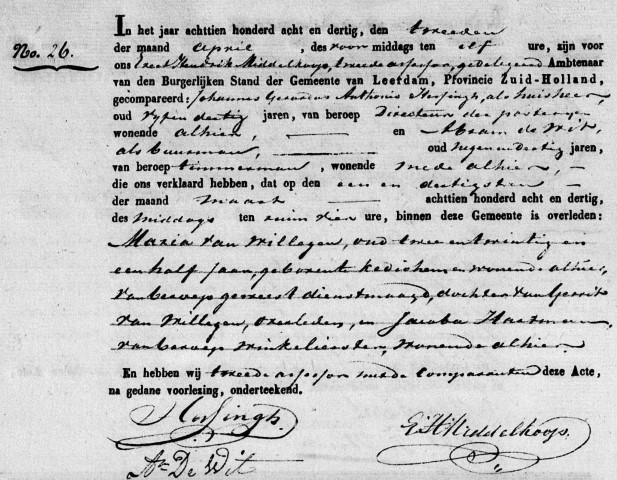 No. 26.
In het jaar achttien honderd acht en dertig, den tweeden
der maand April, des voor middags ten elf ure, zijn voor
ons Evert Hendrik Middelkoop, tweede assessor, gedelegeerd Ambtenaar
van den Burgerlijken Stand der Gemeente van Leerdam, Provincie Zuid-Holland,
gecompareerd: Johannes Gerardus Anthonie Hessingh, als huisheer,
oud vyf en dertig jaren, van beroep Directeur der posteryen
wonende alhier, en Abram de Wit,
als buurman, oud negen en dertig jaren,
van beroep timmerman, wonende mede alhier,
die ons verklaard hebben, dat op den een en dertigsten
der maand Maart achttien honderd acht en dertig,
des middags ten ruim vier ure, binnen deze Gemeente is overleden:
Maria van Willegen, oud twee en twintig en
een half jaar, geboren te Kedichem en wonende alhier,
van beroep geweest dienstmaagd, dochter van Gerrit
van Willegen, overleden, en Jacoba Hartman
van beroep winkelierster, wonende alhier.
En hebben wij tweede assessor met de comparanten deze Acte,
na gedane voorlezing, onderteekend.
Hessingh.
E H Middelkoop.
Am De Wit